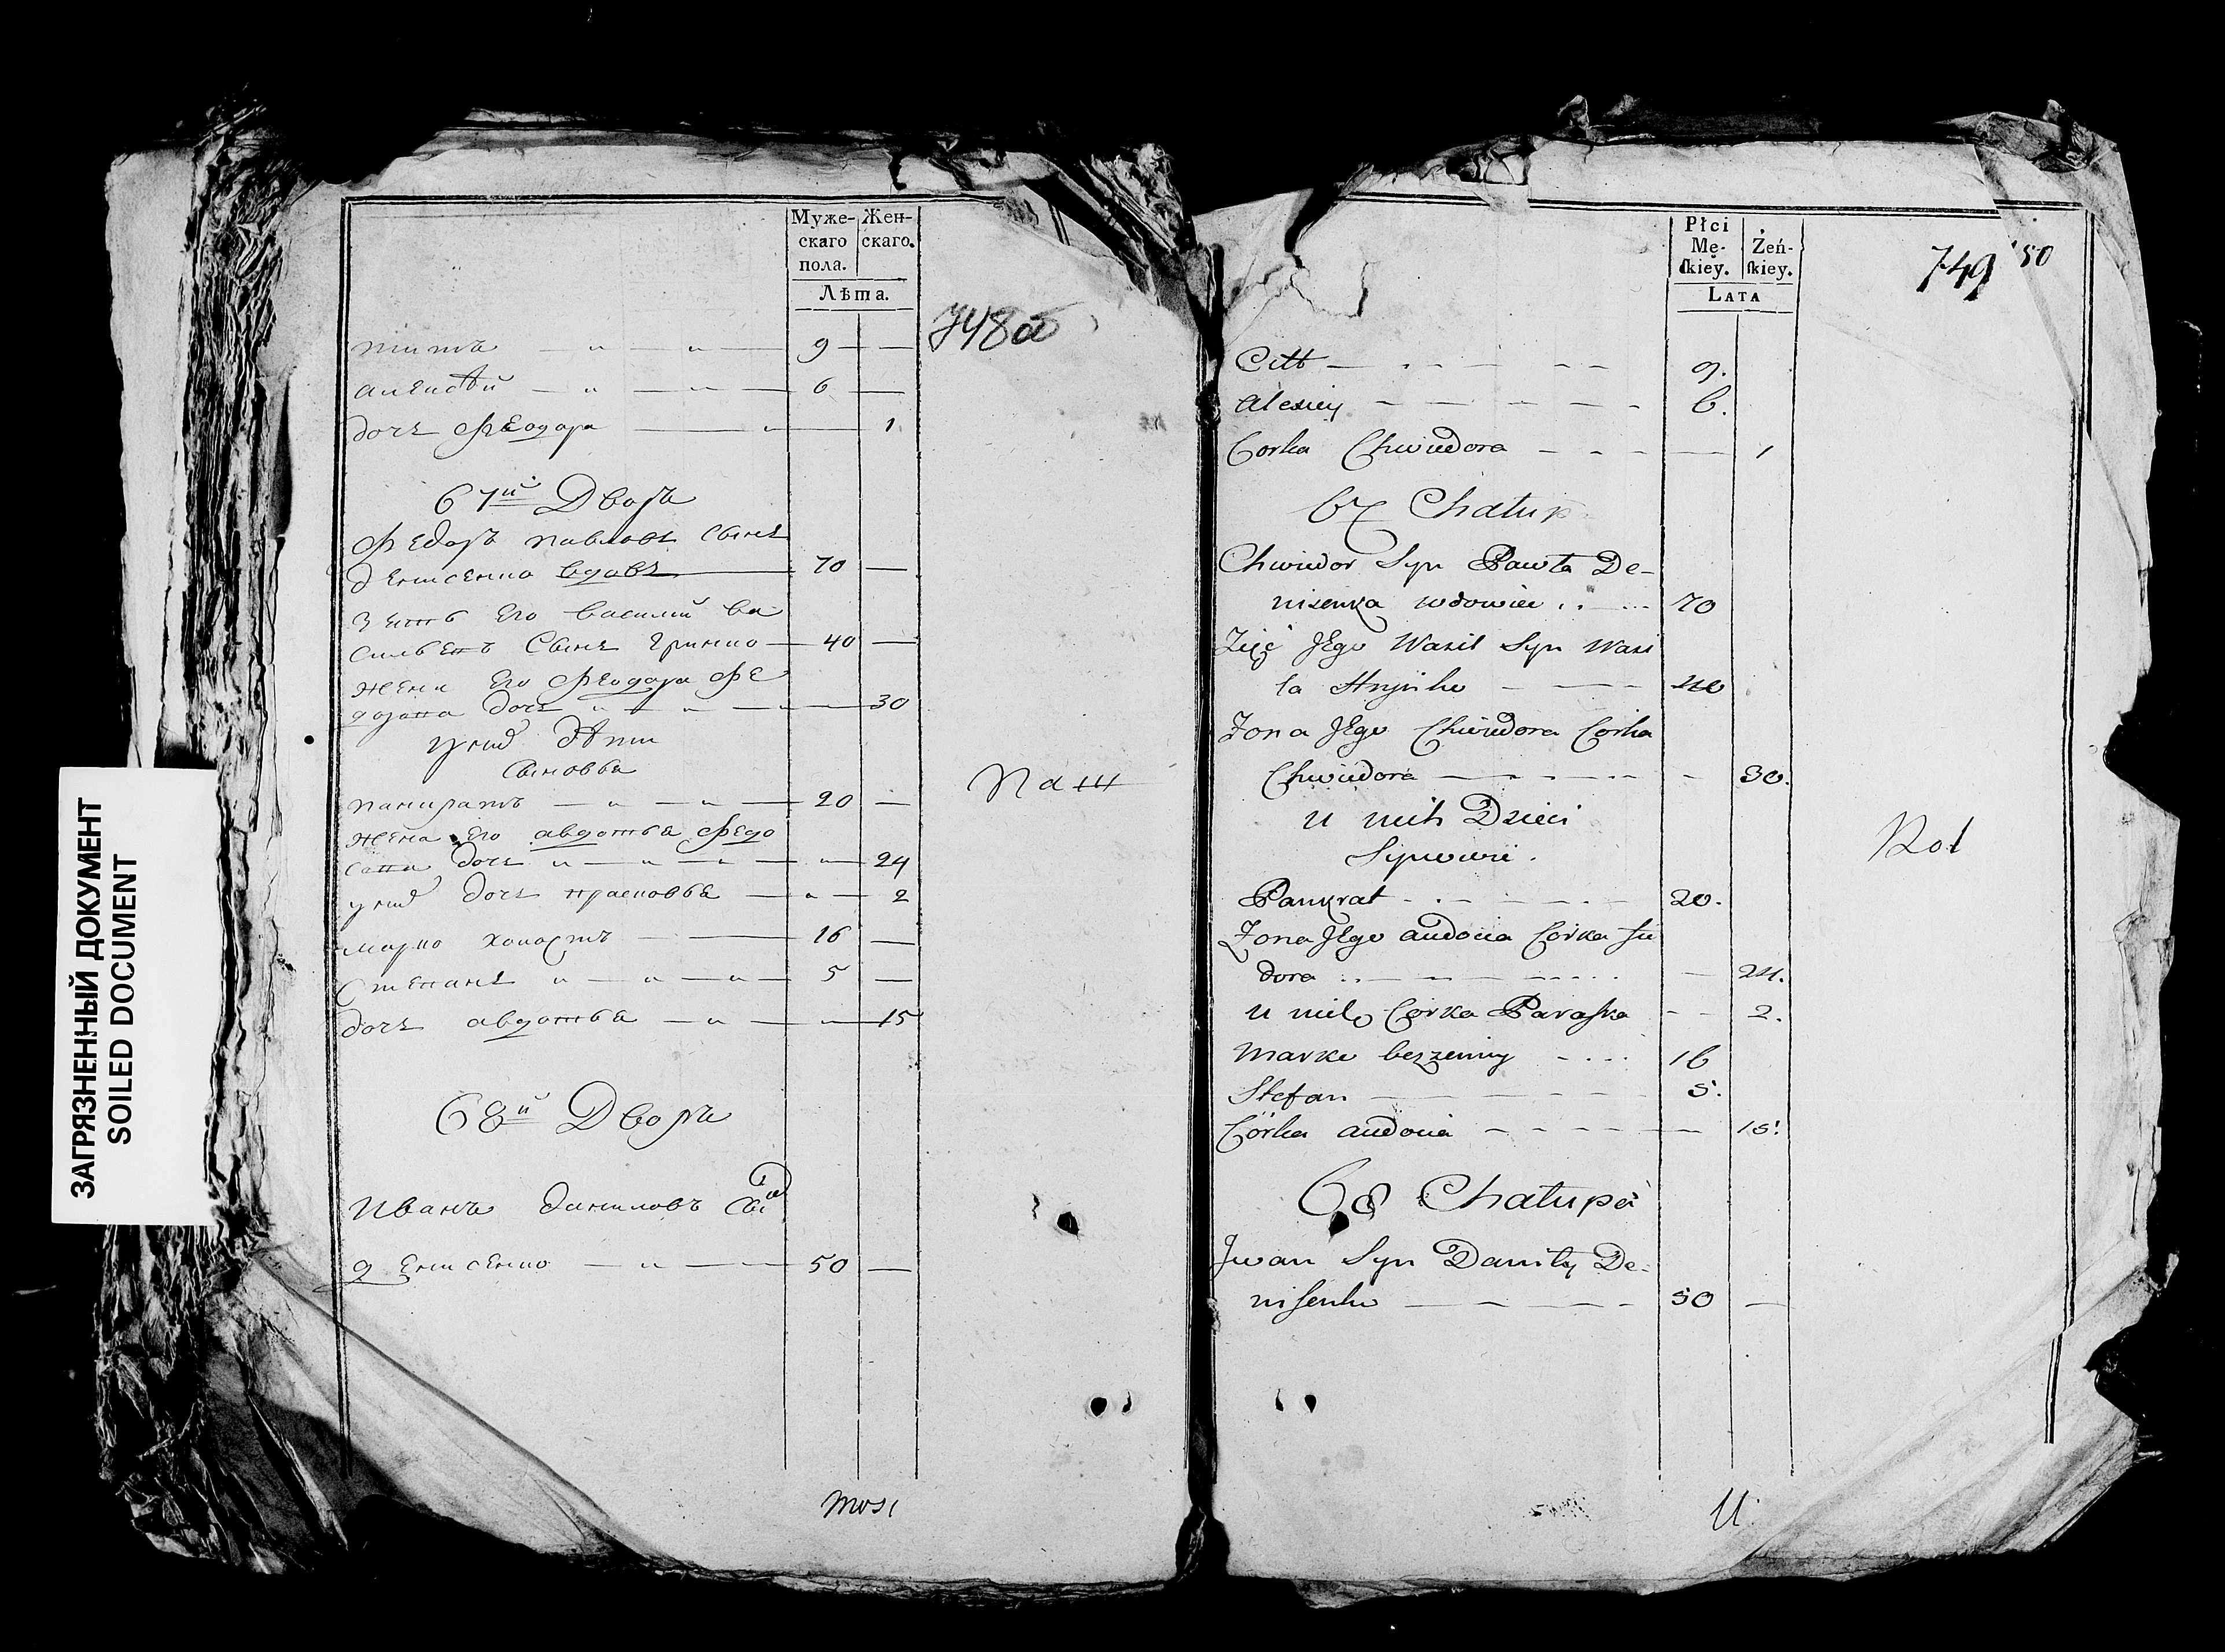 ЗАГРЯЗНЕННЫЙ ДОКУМЕНТ
SOILED DOCUMENT
Муже-
скаго
пола.
Жен-
скаго.
Лѣта.
748об
титъ 9
алексѣй 6
дочь Феодора 1
67й Дворъ
Федоръ павловъ сынъ
денисенко вдовъ 70
зеть его василий ва
сильевъ сынъ гринко 40
жена его Феодора Фе
дорова дочь 30
у них дѣти
сыновья
панкратъ 20
жена его авдотья Федо
рова дочь 24
у них дочь прасковья 2
марко холостъ 16
Степанъ 5
дочь авдотья 15
68й Дворъ
Иванъ даниловъ сынъ
денисенко 50
Паш
Płci
Mę-
skiey.
Żeń-
skiey.
LATA
749 50
Citt 9.
Alexiey 6.
Corka Chwiedora 1
67 Chałup
Chwiedor Syn Pawła De-
nisenka wdowiec 70
Zięć Jego Wasil Syn Wasi
la Hrynko 40
Zona Jego Chwiedora Corka
Chwiedora 30.
U nich Dzieci
Synowie.
Pankrat 20.
Zona Jego audocia Corka fie
dora 24.
U nich Corka Paraska 2.
Marko bezzenny 16
Stefan 5.
Córka audocia 15.
68 Chałupa
Jwan Syn Daniły De-
nisenko 50
Rol
U